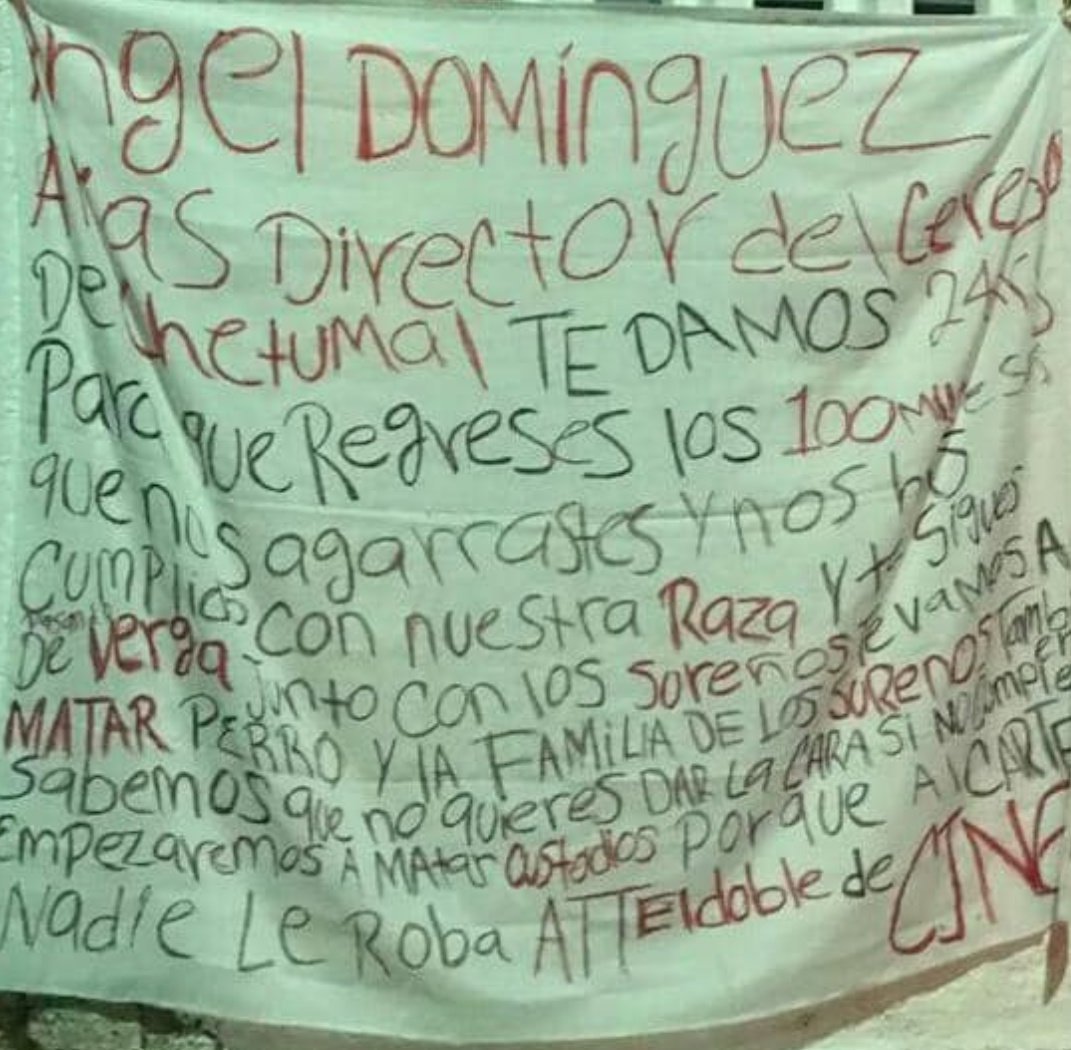 Angel DOMínguez
Arias Director del Cereso
De Chetumal TE DAMOS 24
Para que Regreses los 100
que nos agarrastes y nos
CUMPlias con nuestra Raza y tsigues
De verga junto con los sureños TE VAMOS A
MATAR PERRO Y lA FAMiLIA DE LOS SURENOS Tambien
Sabemos que no quieres DAR La CARA Si NO
Empezaremos A MAtar custodios por que Al CARTE
Nadie Le Roba ATT El doble de CJNG